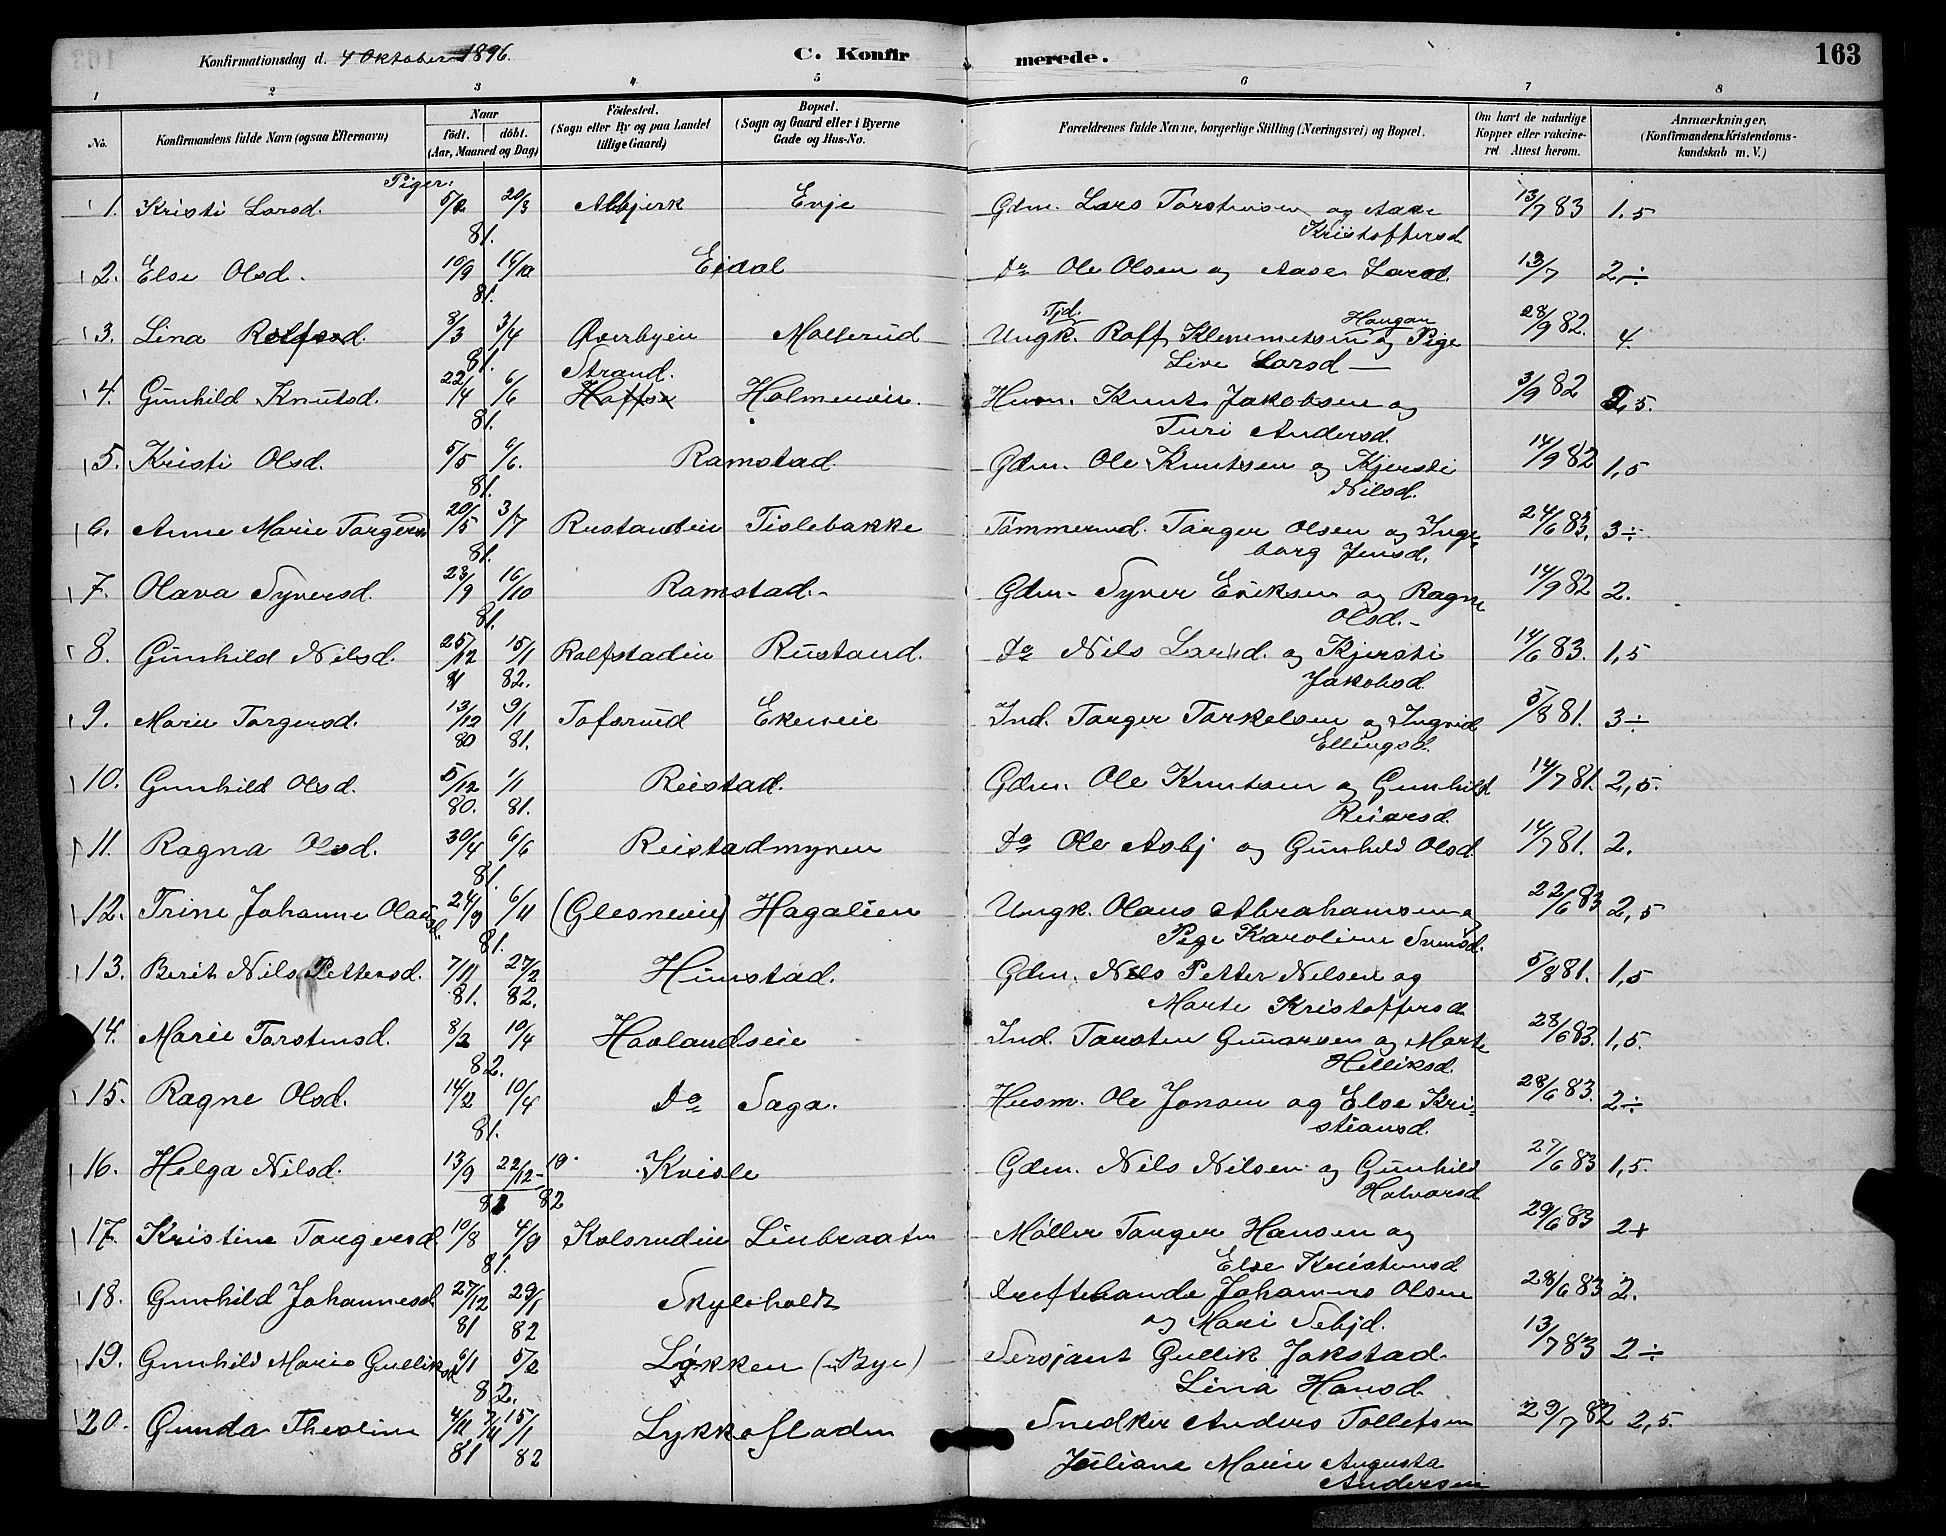 Konfirmationsdag d. 4 Oktober 1896.
C. Konfirmerede.
163
1 2 3 4 5 6 7 8
No. Konfirmandens fulde Navn (ogsaa Efternavn) Naar födt. döbt. (Aar, Maaned og Dag) Födested. (Sogn eller By og paa Landet tillige Gaard) Bopæl. (Sogn og Gaard eller i Byerne Gade og Hus-No. Forældrenes fulde Navne, borgerlige Stilling (Næringsvei) og Bopæl. Om havt de naturlige Kopper eller vakcineret Attest herom. Anmærkninger, (Konfirmandens Kristendomskundskab m. V.)
Piger.
1. Kristi Larsd. 5/2 20/3 81. Evje Gdm. Lars Torstensen og Aase Kristoffersd. 13/7 83 1,5
2. Else Olsd. 10/9 14/10 81. Eidal Do Ole Olsen og Aase Larsd. 13/7 2÷
3. Lina Rolfsd. 8/3 3/4 81. Øverbyeie Mollerud Ungk. Rolf Klemmetsen Haugan og Pige Live Larsd — 28/9 82. 4.
4. Gunhild Knutsd. 22/4 6/6 81. Strand. Holmeneie. Husm. Knut Jakobsen og Turi Andersd. 3/9 82 2,5.
5. Kristi Olsd. 5/5 6/6. 81. Ramstad. Gdm. Ole Knutsen og Kjersti Nilsd. 14/9 82 1,5
6. Anne Marie Torgersd 20/5 3/7 81. Rustandeie Tislebakke Tømmermd. Torger Olsen og Ingeborg Jensd. 24/6 83. 3÷
7. Olava Syversd. 23/9 16/10 81. Ramstad.- Gdm. Syver Eriksen og Ragne Olsd.- 14/9 82 2.
8. Gunhild Nilsd. 25/12 81 15/1 82. Rolfstadeie Rustand. Do Nils Larsd. og Kjersti Jakobsd. 14/6 83. 1,5
9. Marie Torgersd. 13/12 80 9/1 81. Tofsrud Ekeneie Ind. Torger Torkelsen og Ingrid Ellingsd. 5/8 81. 3÷
10. Gunhild Olsd. 5/12 80. 1/1 81. Reistad. Gdm. Ole Knutsen og Gunhild Reiarsd. 14/7 81. 2,5.
11. Ragna Olsd. 30/4 6/6 81. Reistadmyren Do Ole Asbj og Gunhild Olsd. 14/7 81. 2.
12. Trine Johanne Olausd. 24/9 6/11 81. (Glesneeie) Hagalien Ungk. Olaus Abrahamsen og Pige Karoline Svensd. 22/6 83 2,5
13. Berit Nils Pettersd. 7/11 81. 27/2 82. Himstad. Gdm. Nils Petter Nilsen og Marte Kristoffersd 5/8 81. 1,5
14. Marie Torstensd. 8/2 10/4 82. Hovlandseie Ind. Torsten Gunarsen og Marte Helliksd. 28/6 83. 1,5.
15. Ragne Olsd. 14/2 10/4 81. Do Saga. Husm. Ole Jonsen og Else Kristiansd. 28/6 83. 2÷
16. Helga Nilsd. 13/9 22/12- 81 82 Kvisle Gdm. Nils Nilsen og Gunhild Halvorsd 27/6 83 1,5.
17. Kristine Torgersd. 10/8 4/9 81. Kolsrudeie Linbraaten Møller Torger Hansen og Else Kristensd 29/6 83 2+
18. Gunhild Johannesd. 27/12 81 29/1 82 Skyleholdt Johannes Olsen og Mari Sebjd. 28/6 83 2.
19. Gunhild Marie Gulliksd 6/1 5/2 82. Løkken (u Bye) Sersjant Gullik Jokstad. Lina Hansd. 13/7 83 2÷
20. Gunda Theoline 4/11 81 15/1 82 Lykkefladen Snedker Anders Tollefsen Juliane Marie Augusta Andersen 29/7 82 2,5.